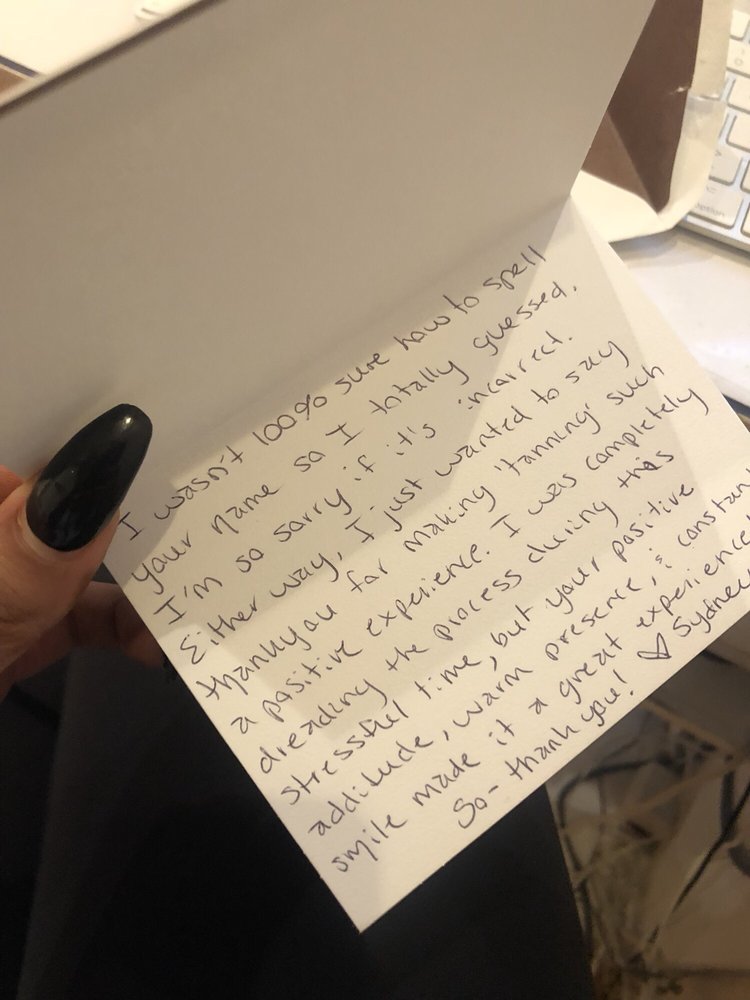 I wasn't 100% sure how to spell
your name so I totally guessed.
I'm so sorry if it's incorrect.
Either way, I just wanted to say
thankyou for making 'tanning' such
a positive experience. I was completely
dreading the process during this
stressful time, but your positive
addidude, warm presence, & constan
smile made it a great experience
So- thank you! ♡ Sydney
option